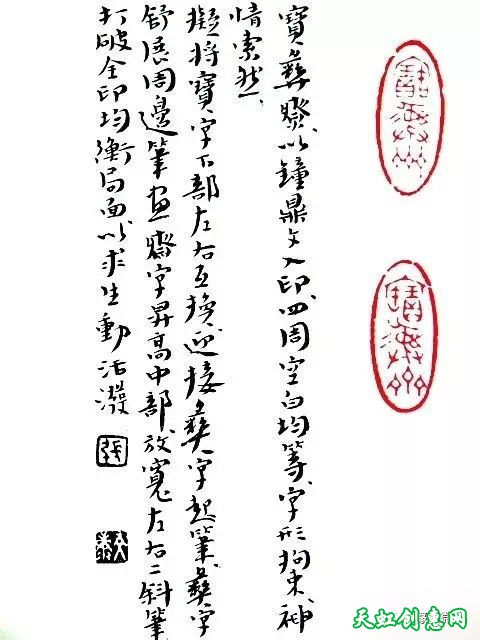 寶彝齋以鐘鼎文入印四周空白均等字形拘束神
情索然
擬將寶字下部左右互換迎接彝字起筆彝字
舒展周邊筆畫齋字昇高中部放寬左右二斜筆
打破全印均衡局面以求生動活潑
張
寶彝齋
寶彝齋
天虹创意网